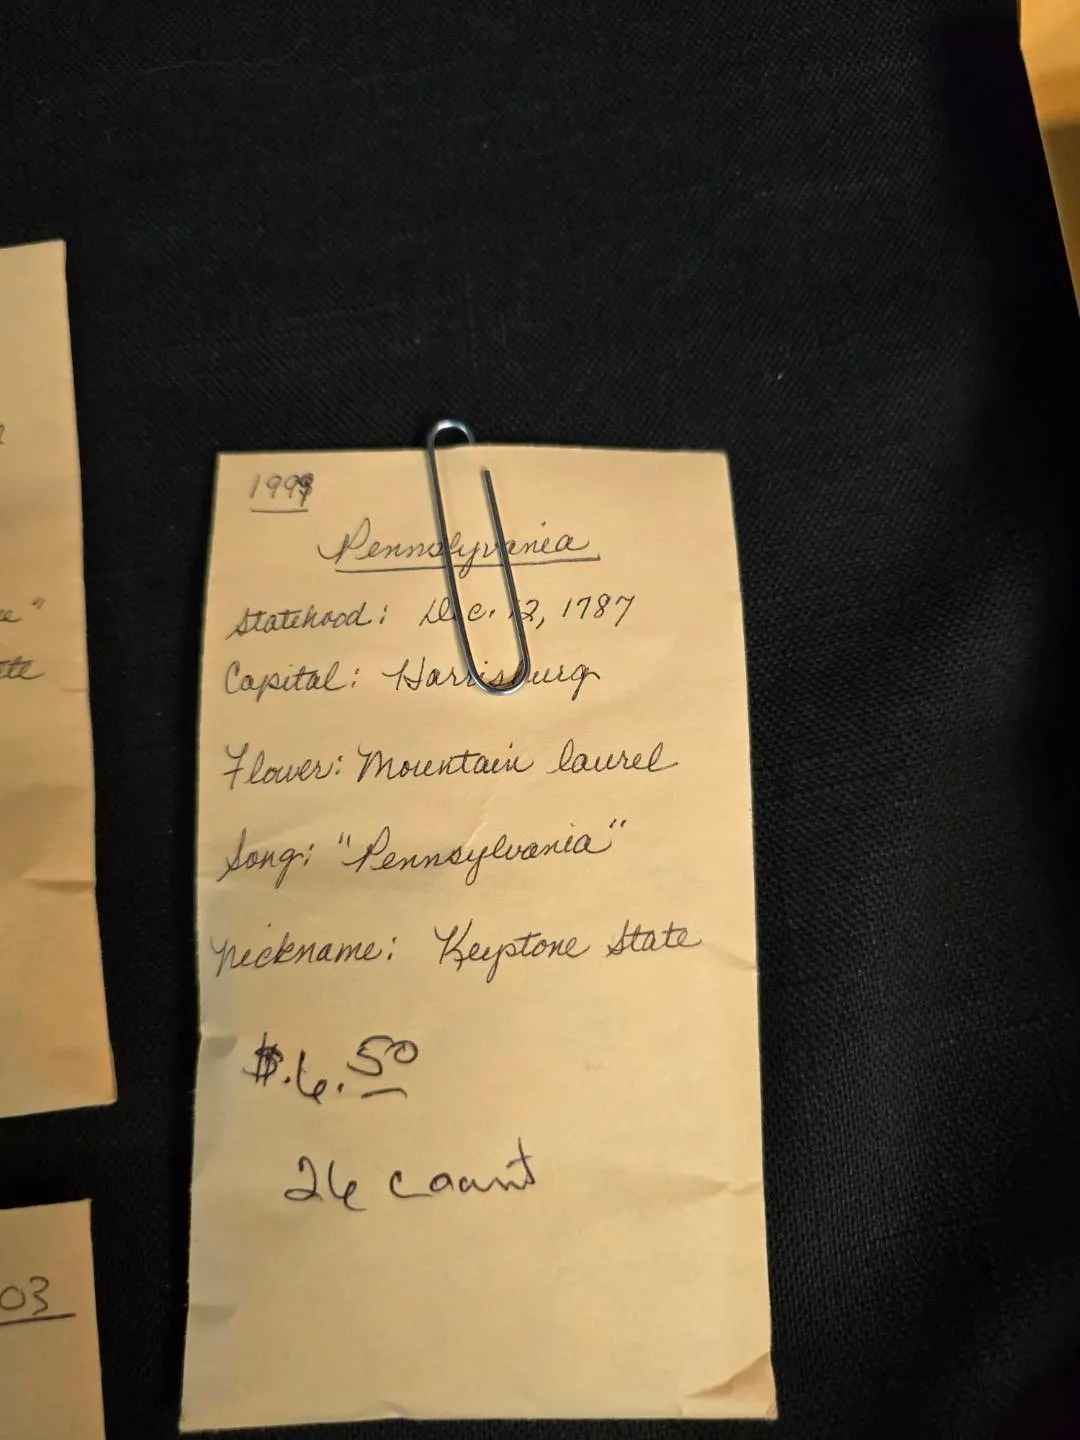 1999
Pennslyvania
Statehood: Dec. 12, 1787
Capital: Harrisburg
Flower: Mountain laurel
Song: "Pennsylvania"
Nickname: Keystone State
$.6.50
26 count
03